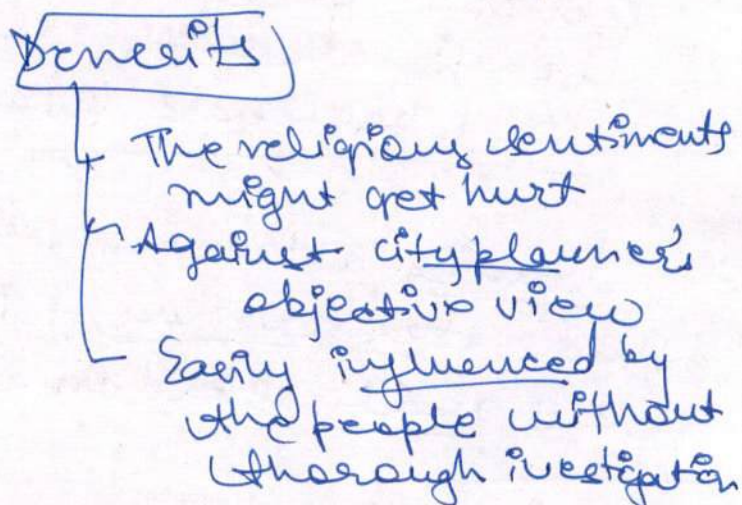 Demerits
The religious sentiments
might get hurt
Against city planner's
objective view
Easily influenced by
the people without
thorough ivestigation